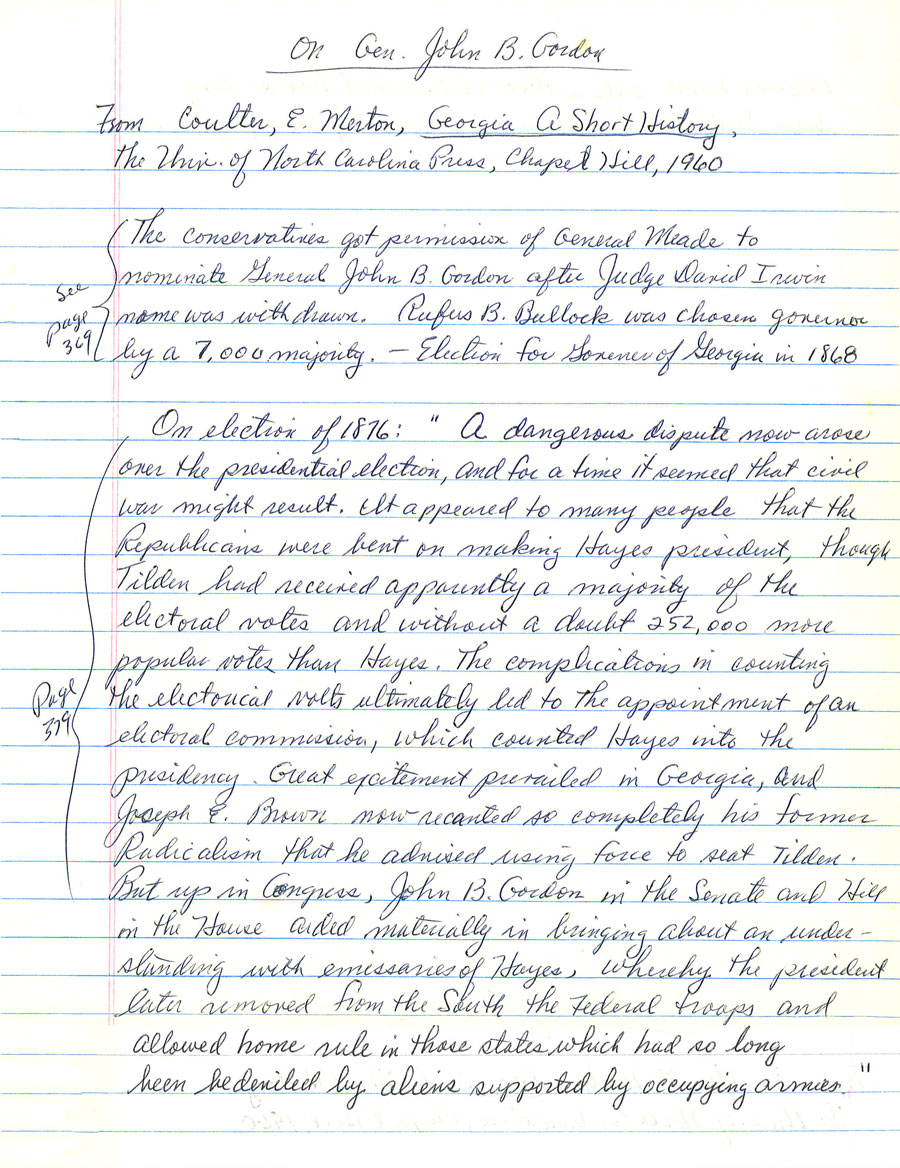 On Gen. John B. Gordon
From Coulter, E. Merton, Georgia A Short History,
the Univ. of North Carolina Press, Chapel Hill, 1960
The conservatives got permission of General Meade to
nominate General John B. Gordon after Judge David Irwin
name was withdrawn. Rufus B. Bullock was chosen governor
by a 7,000 majority. – Election for Governor of Georgia in 1868
See
page
369
On election of 1876: " A dangerous dispute now arose
over the presidential election, and for a time it seemed that civil
war might result. It appeared to many people that the
Republicans were bent on making Hayes president, though
Tilden had received apparently a majority of the
electoral votes and without a doubt 252,000 more
popular votes than Hayes. The complications in counting
the electorical volts ultimately led to the appointment of an
electoral commission, which counted Hayes into the
presidency. Great excitement prevailed in Georgia, and
Joseph E. Brown now recanted so completely his former
Radicalism that he advised using force to seat Tilden.
But up in Congress, John B. Gordon in the Senate and Hill
in the House aided materially in bringing about an under-
standing with emissaries of Hayes, whereby the president
later removed from the South the Federal troops and
allowed home rule in those states which had so long
been bedeviled by aliens supported by occupying armies. "
Page
379